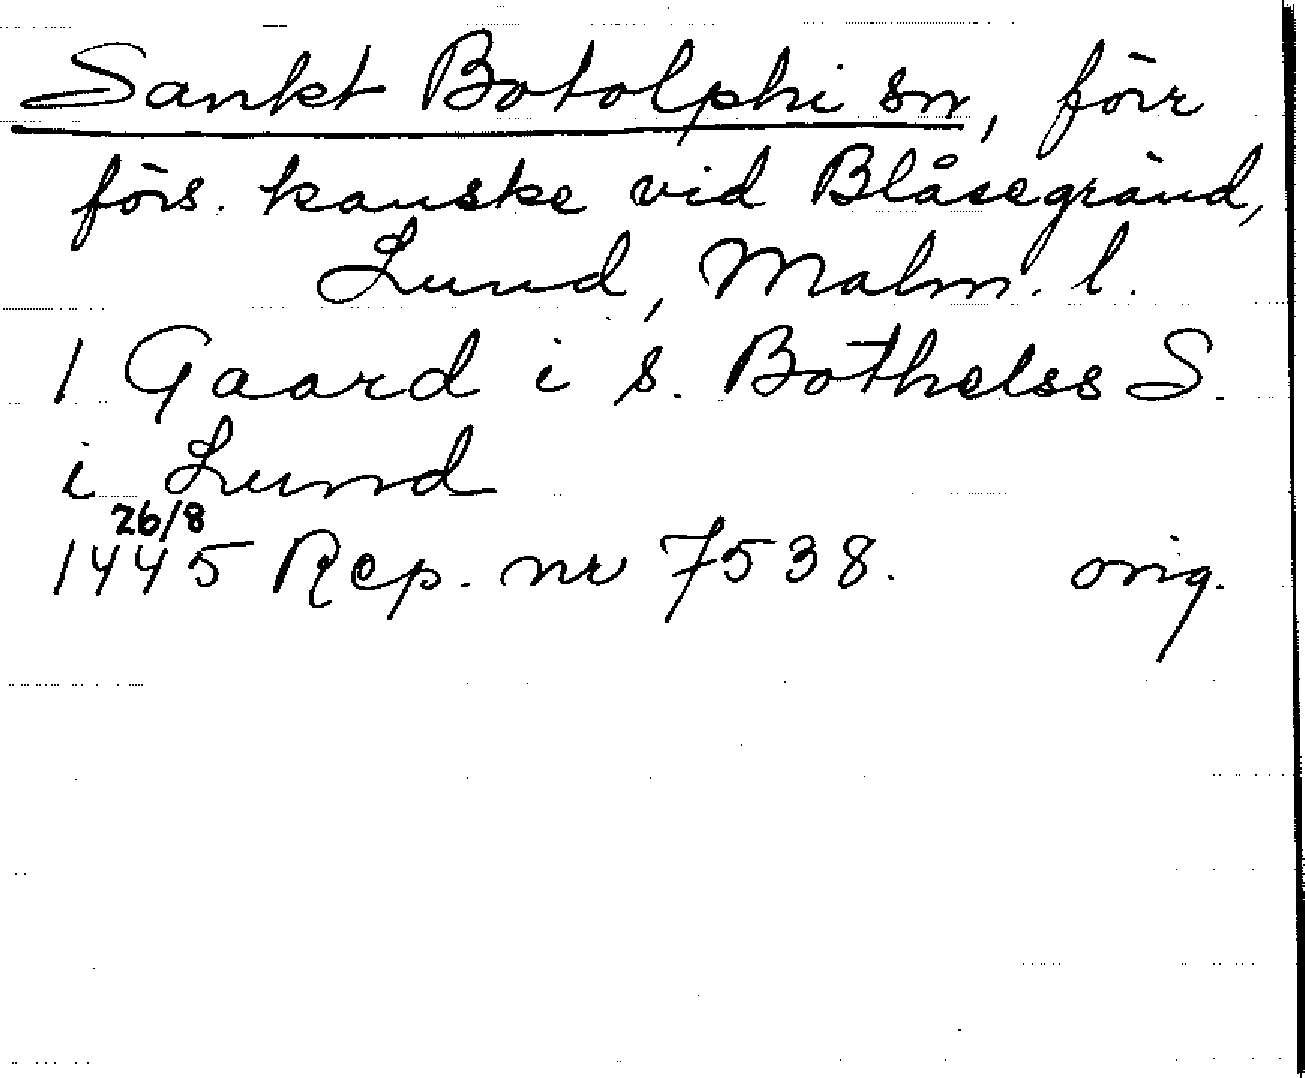 Sankt Botolphi sn, förr
förs. kanske vid Blåsegränd,
Lund, Malm. l.
1 Gaard i s. Bothelss S.
i Lund
26/8
1445 Rep. nr 7538. orig.